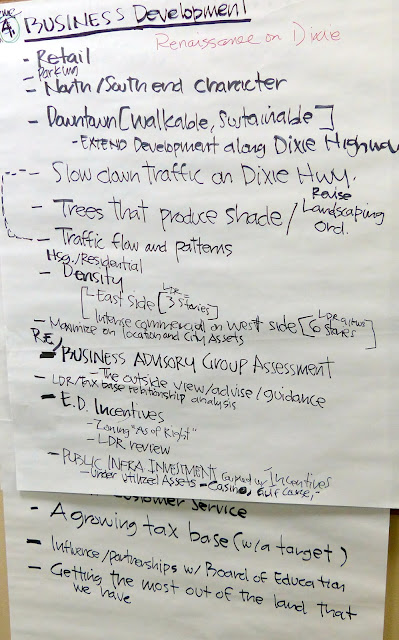 4. BUSINESS Development
Renaissance on Dixie
- Retail
- Parking
- North/South end character
- Downtown [Walkable, Sustainable]
- EXTEND Development along Dixie Highway
- Slow down traffic on Dixie Hwy.
- Trees that produce shade / Revise Landscaping Ord.
- Traffic flow and patterns
Hsg./Residential
- Density
[- East side [LDR 3 Stories]
- Intense commercial on west side [LDR 6 Stories]
- Maximize on location and City Assets
R.E./
- BUSINESS ADVISORY Group Assessment
- The outside view/advise/guidance
- LDR/Tax base relationship analysis
- E.D. Incentives
- Zoning "As of Right"
- LDR review
- PUBLIC INFRA INVESTMENT w/ Incentives
- Under utilized Assets - Casino, Golf Course,
Customer Service
- A growing tax base (w/a target)
- Influence/partnerships w/ Board of Education
- Getting the most out of the land that
we have